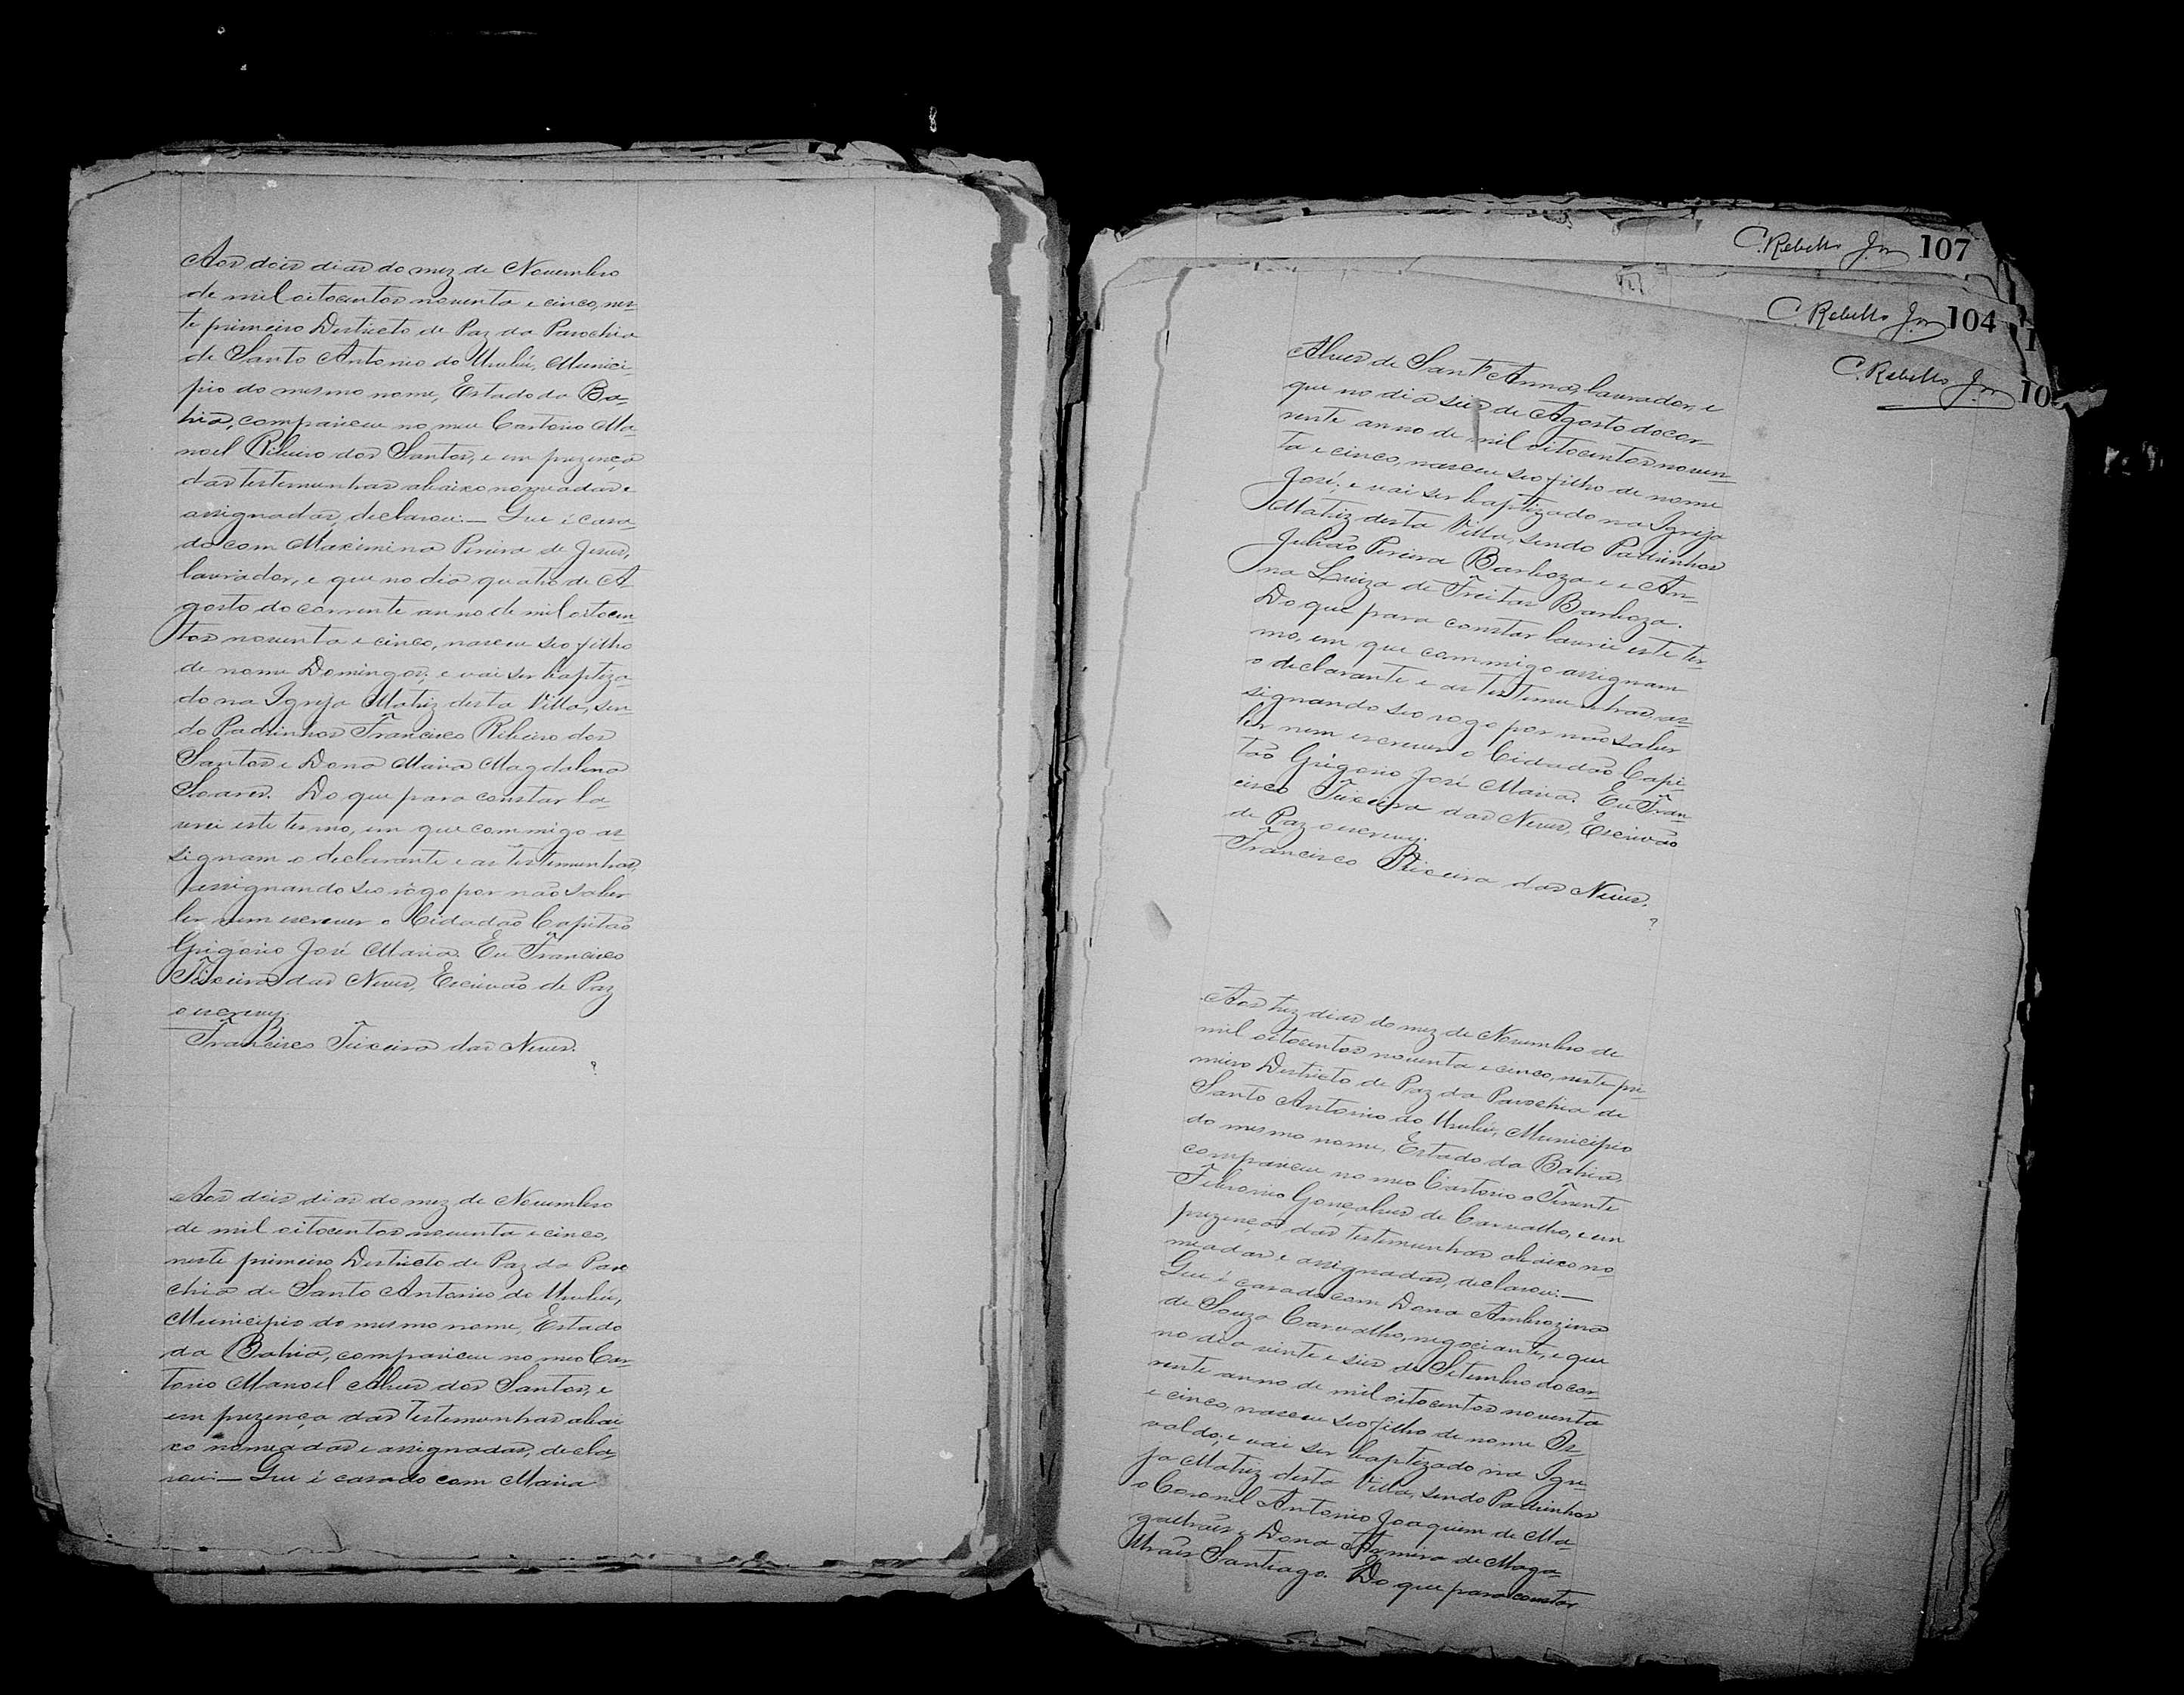 Aos dois dias do mez de Novembro
de mil oitocentos noventa e cinco, nes-
te primeiro Destricto de Paz da Parochia
de Santo Antonio do Urubú, Munici-
pio do mesmo nome, Estado da Ba-
hia, compareceu no meu Cartorio Ma-
noel Ribeiro dos Santos, e em prezença
das testemunhas abaixo nomeadas e
assignadas, declarou:— Que é casa-
do com Maximina Pereira de Jesus,
lavrador, e que no dia quatro de A-
gosto do corrente anno de mil oitocen-
tos noventa e cinco, nasceu seo filho
de nome Domingos; e vai ser baptiza-
do na Igreja Matriz desta Villa, sen-
do Padrinhos Francisco Ribeiro dos
Santos e Dona Maria Magdalena
Soares. Do que para constar la-
vrei este termo, em que commigo as-
signam o declarante e as testemunhas,
assignando seo rogo por não saber
ler nem escrever o Cidadão Capitão
Grigorio José Maria. Eu Francisco
Teixeira das Neves, Escrivão de Paz
o escrevy.
Francisco Teixeira das Neves.
Aos dois dias do mez de Novembro
de mil oitocentos noventa e cinco,
neste primeiro Destricto de Paz da Paro-
chia de Santo Antonio do Urubú,
Municipio do mesmo nome, Estado
da Bahia, compareceu no meo Car-
torio Manoel Alves dos Santos, e
em prezença das testemunhas abai-
xo nomeadas e assignadas, decla-
rou:— Que é casado com Maria
C. Rebello Jor 107
C. Rebello Jor 104
C. Rebello Jor 10
Alves de Sant'Anna, lavrador, e
que no dia seis de Agosto do cor-
rente anno de mil oitocentos noven-
ta e cinco, nasceu seo filho de nome
José; e vai ser baptizado na Igreja
Matriz desta Villa, sendo Padrinhos
Julião Pereira Barboza e e An-
na Luiza de Freitas Barboza.
Do que para constar lavrei este ter-
mo, em que commigo assignam
o declarante e as testemunhas, as-
signando seo rogo por não saber
ler nem escrever o Cidadão Capi-
tão Grigorio José Maria. Eu Fran-
cisco Teixeira das Neves, Escrivão
de Paz o escrevy.
Francisco Teixeira das Neves.
Aos trez dias do mez de Novembro de
mil oitocentos noventa e cinco, neste pri-
meiro Destricto de Paz da Parochia de
Santo Antonio do Urubú, Municipio
do mesmo nome, Estado da Bahia,
compareceu no meo Cartorio o Tenente
Febronio Gonçalves de Carvalho, e em
prezença das testemunhas abaixo no-
meadas e assignadas, declarou:—
Que é casado com Dona Ambrozina
de Souza Carvalho, negociante, e que
no dia vinte e seis de Setembro do cor-
rente anno de mil oitocentos noventa
e cinco, nasceu seo filho de nome Is-
valdo; e vai ser baptizado na Igre-
ja Matriz desta Villa, sendo Padrinhos
o Coronel Antonio Joaquim de Ma-
galhães e Dona de Maga-
lhães Santiago. Do que para constar